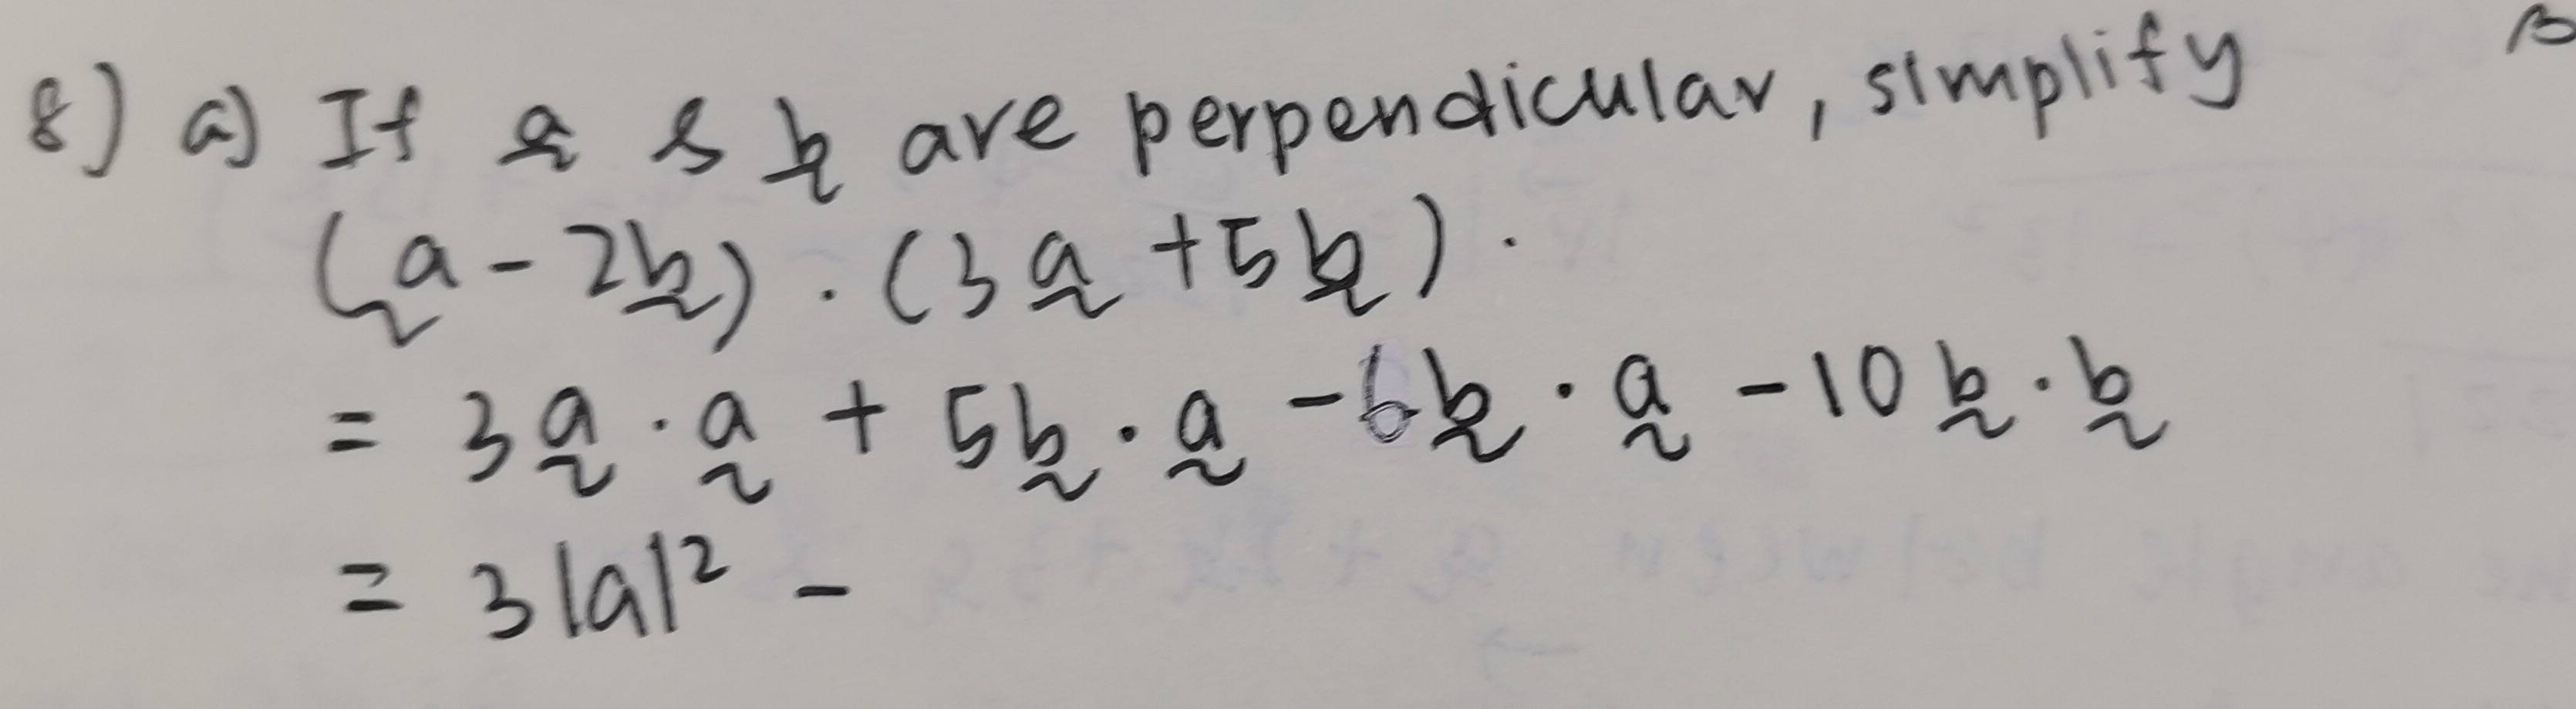 8) a) If a & b are perpendicular, simplify
(a - 2b) · (3a + 5b).
= 3a · a + 5b · a - 6b · a - 10b · b
= 3|a|² -